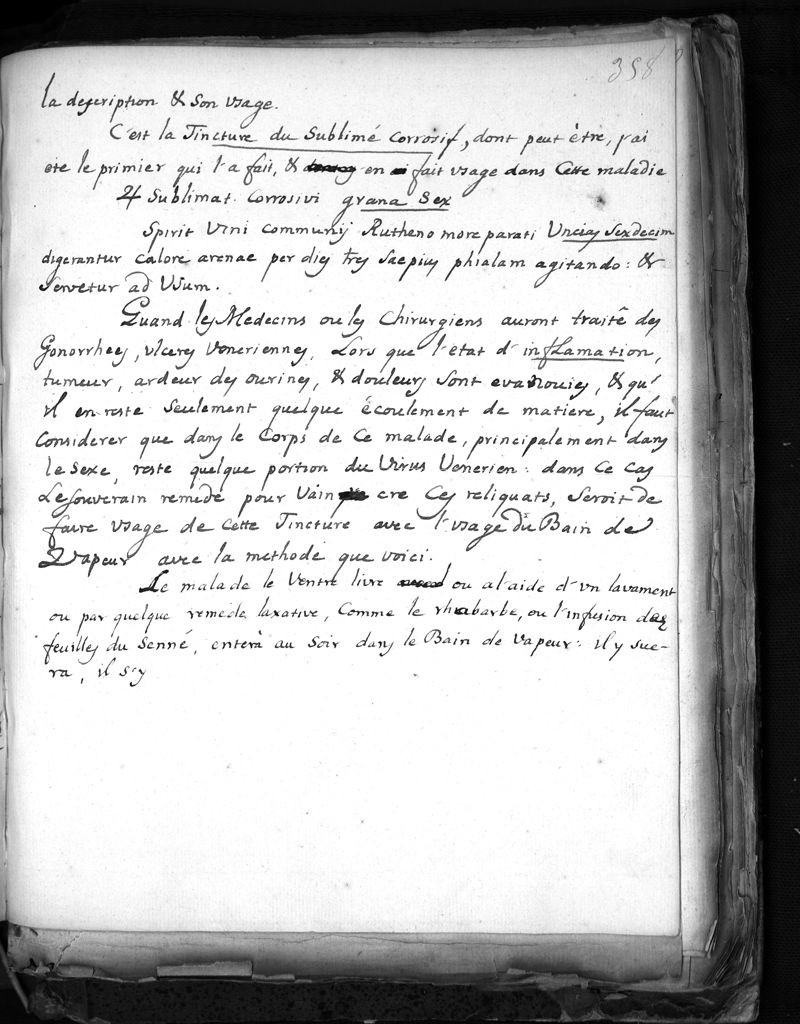 358
la description & Son usage.
C'est la Tincture du Sublimé Corrosif, dont peut être, j'ai
ete le primier qui l'a fait, & en fait usage dans Cette maladie
♃ Sublimat. Corrosivi grana Sex
Spirit Vini Communij Rutheno more parati Uncias Sexdecim
digerantur Calore arenae per dies tres Saepius phialam agitando: &
Servetur ad Usum.
Quand les Medecins ou les Chirurgiens auront traité des
Gonorrhees, ulceres Veneriennes, Lors que l'état d'inflamation,
tumeur, ardeur des ourines, & douleurs sont evanouies, & qu'
il en reste Seulement quelque écoulement de matiere, il faut
Considerer que dans le Corps de Ce malade, principalement dans
le Sexe, reste quelque portion du Virus Venerien: dans Ce Cas
Le Souverain remede pour Vain cre Ces reliquats, Seroit de
faire Usage de Cette Tincture avec l'usage du Bain de
Vapeur avec la methode que voici.
Le malade le Ventre livre ou a l'aide d'un lavament
ou par quelque remede laxative, Comme le rhabarbe, ou l'infusion des
feuilles du Senné, enterà au Soir dans le Bain de Vapeur: il y sue-
ra, il s'y